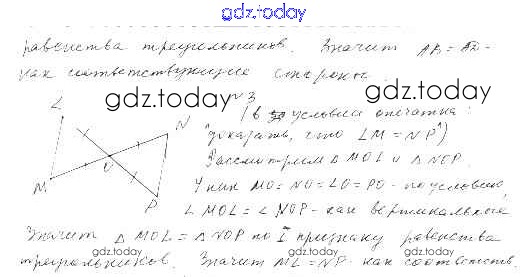 gdz.today
равенства треугольников. Значит AB = AD -
как соответствующие стороны.
gdz.today
gdz.today
№3
(в условии опечатка:
"доказать, что LM = NP")
Рассмотрим Δ MOL и Δ NOP.
У них MO = NO = LO = PO - по условию,
∠ MOL = ∠ NOP - как вертикальные
L
N
M
O
P
Значит Δ MOL = Δ NOP по I признаку равенства
треугольников. Значит ML = NP как соответств.
gdz.today
gdz.today